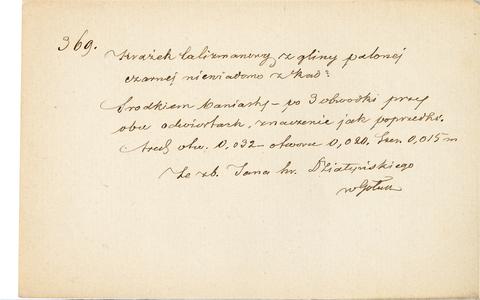 369.
Krążek talizmanowy z gliny palonej
czarnej niewiadomo z kąd?
Środkiem baniasty – po 3 obwódki przy
obu odwiortach, znaczenie jak poprzedni.
obw. 0,032 – otworu 0,020. Szer. 0,015 m
Ze zb. Jana hr. Działyńskiego
w Gołuch